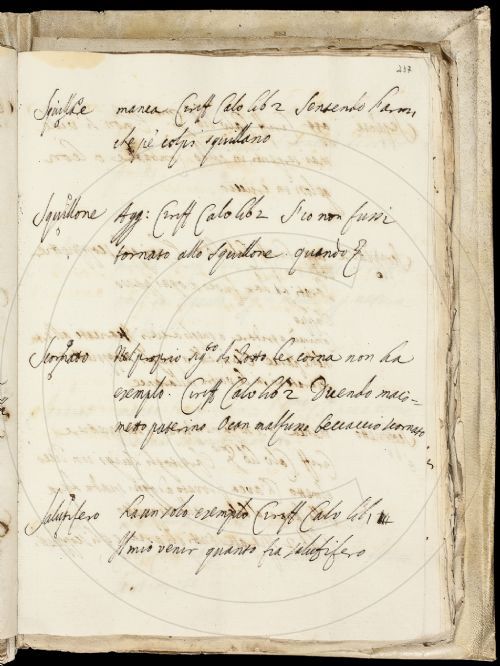 237
Squillare manca Ciriff Calo lib 2 Sentendo l'armi
che pe' colpi squillano
Squillone Agg: Ciriff Calo lib 2 S'io non fussi
tornato allo squillone quando
Scornato Nel proprio sig.to di rotto le corna non ha
esemplo. Ciriff Calo lib 2 Dicendo maco-
metto paterino O can malfusso beccaccio scornato
Salutifero ha un solo esemplo Ciriff Calv lib
Il mio venir quanto fia salutifero